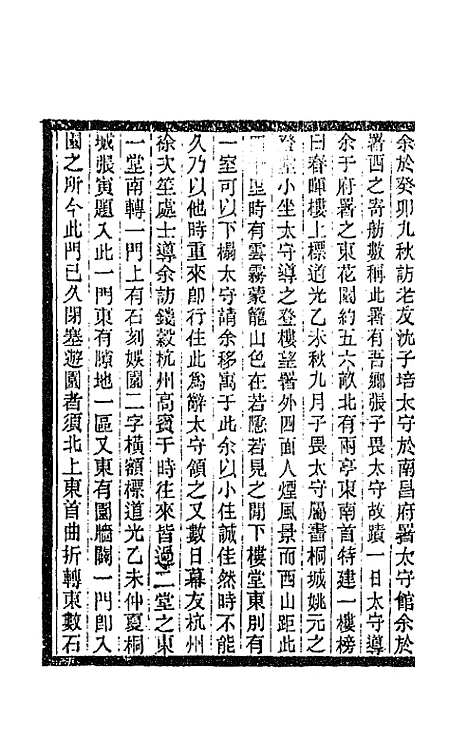 余於癸卯九秋訪老友沈子培太守於南昌府署太守館余於
署西之寄舫數稱此署有吾鄉張子畏太守故蹟一日太守導
余于府署之東花園約五六畝北有兩亭東南首特建一樓榜
曰春暉樓上標道光乙未秋九月子畏太守屬書桐城姚元之
登堂小坐太守導之登樓望署外四面人煙風景而西山距此
里時有雲霧蒙籠山色在若隱若見之閒下樓堂東別有
一室可以下榻太守請余移寓于此余以小住誠佳然時不能
久乃以他時重來卽行住此爲辭太守領之又數日幕友杭州
徐次笙處士導余訪錢穀杭州高賓于時往來皆過二堂之東
一堂南轉一門上有石刻娛園二字橫額標道光乙未仲夏桐
城張寅題入此一門東有隙地一區又東有圍牆闢一門卽入
園之所今此門已久閉塞遊園者須北上東首曲折轉東數石